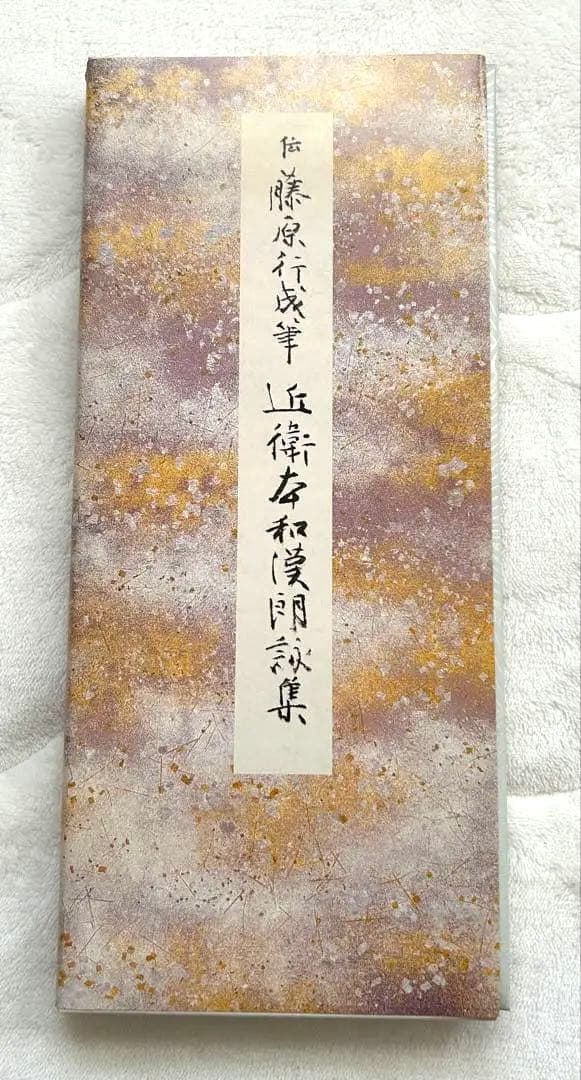 伝 藤原行成筆 近衛本和漢朗詠集